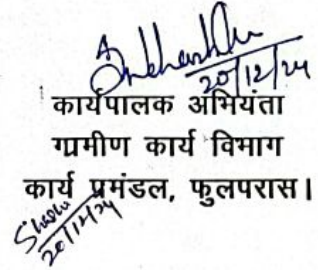 20/12/24
कार्यपालक अभियंता
ग्रामीण कार्य विभाग
कार्य प्रमंडल, फुलपरास।
20/12/24